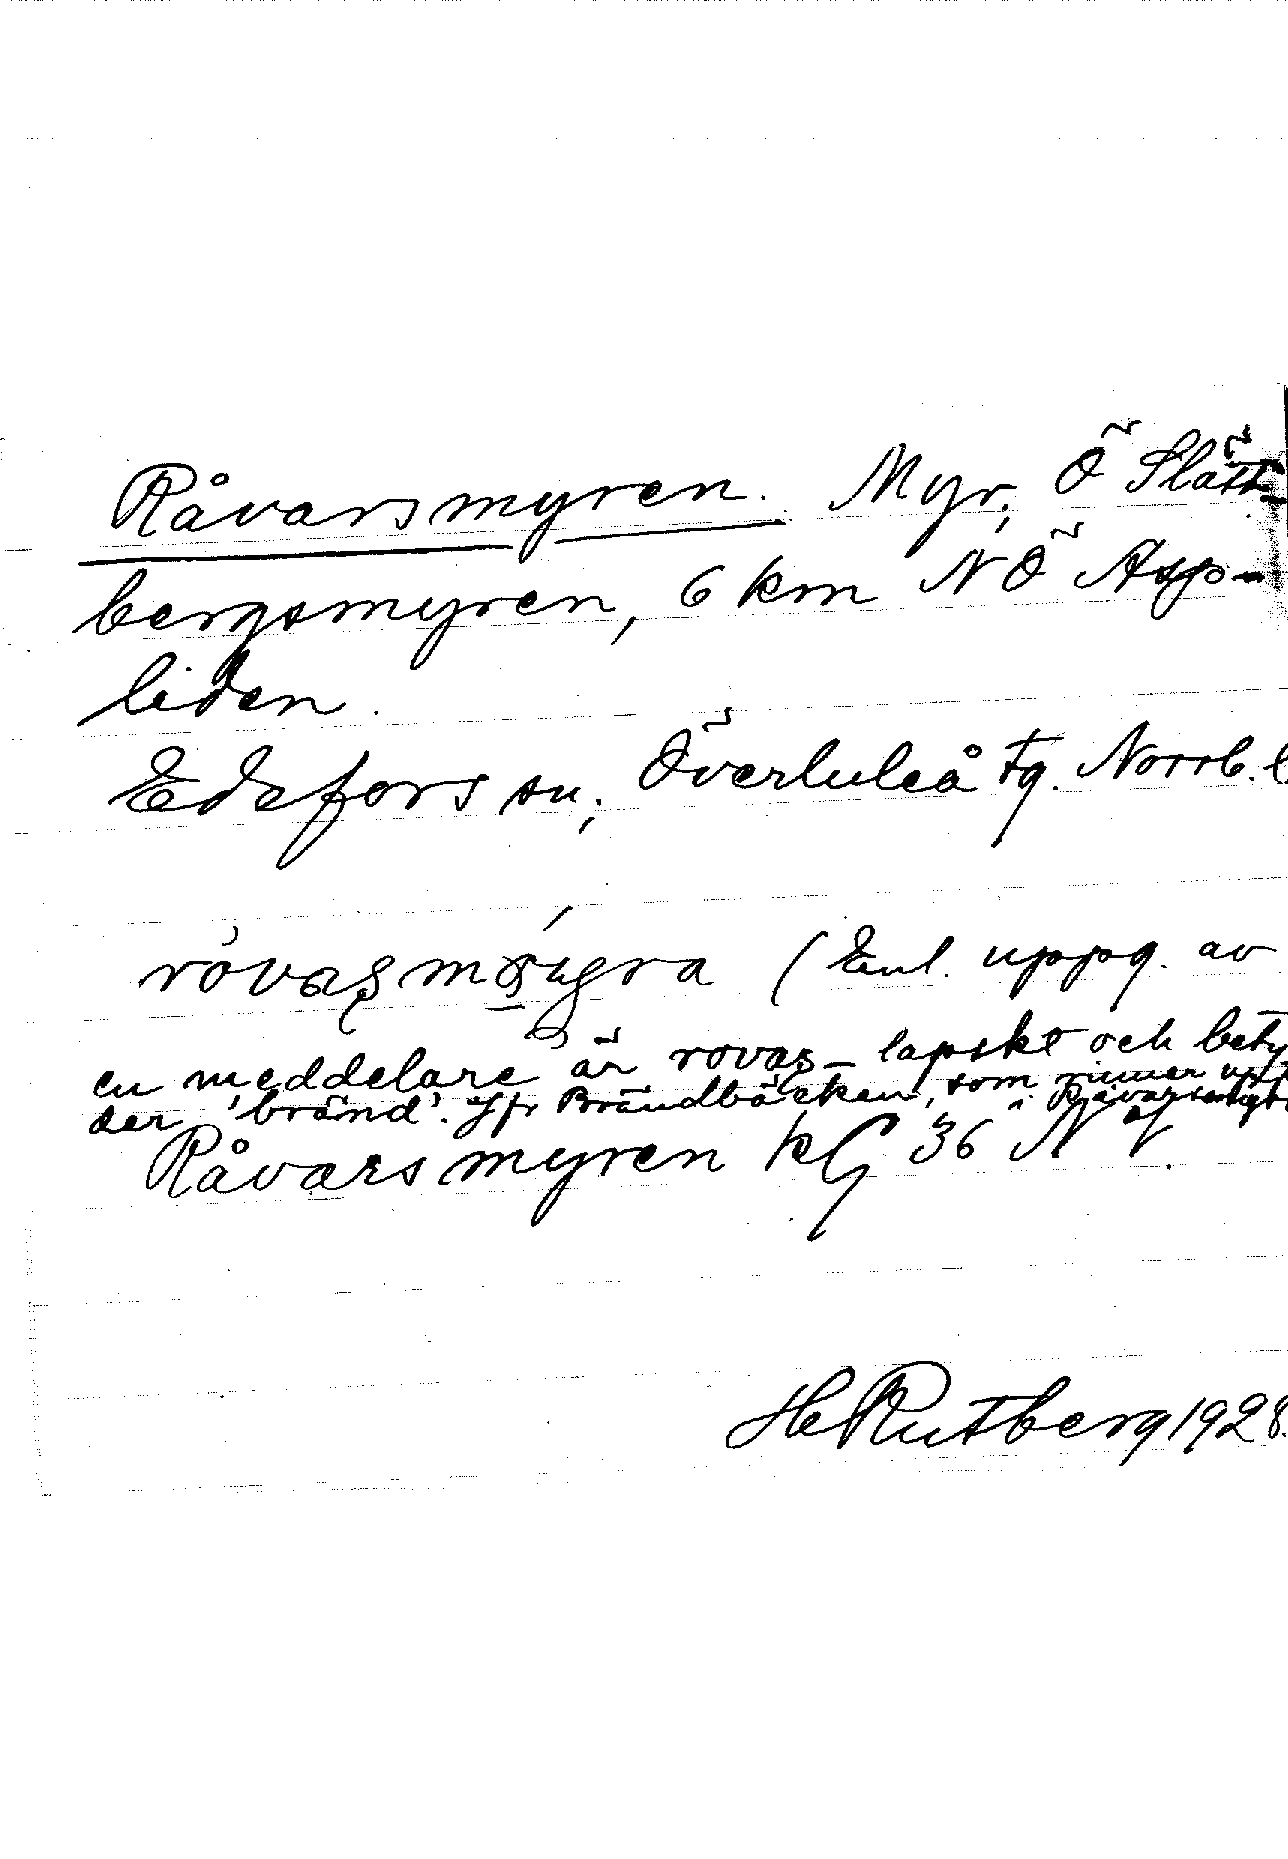 Råvarsmyren. Myr, Ö Slått-
bergsmyren, 6 km NÖ Asp-
liden.
Edefors sn, Överluleå tg. Norrb. l
(Enl. uppg. av
en meddelare är rovas- lapskt och bety
der 'bränd'. Jfr Brändbäcken, som rinner upp
i
Råvarsmyren kG 36 NV.
HeRutberg 1928.